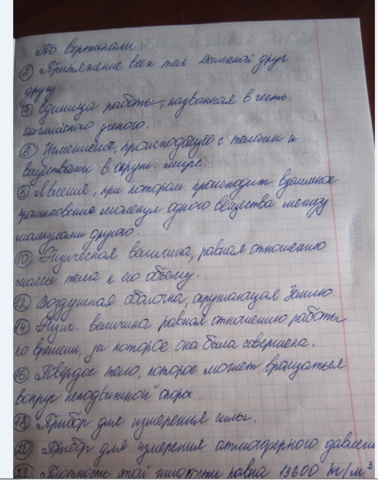 По вертикали
② Притяжение всех тел Вселенной друг
другу
⑤ единица работы, названная в честь
английского ученого.
⑥ Изменение, происходящие с телами и
веществами в окруж. мире.
Явление, при котором происходит взаимное
проникновение молекул одного вещества между
молекулами другого.
⑩ Физическая величина, равная отношению
массы тела к его объему.
⑫ Воздушная оболочка, окружающая Землю.
⑭ Физич. величина равная отношению работы
ко времени, за которое она была совершена.
⑯ Твердое тело, которое может вращаться
вокруг неподвижной опоры
⑱ Прибор для измерения силы.
⑳ Прибор для измерения атмосферного давлени
Плотность этой жидкости равна 13600 кг/м³